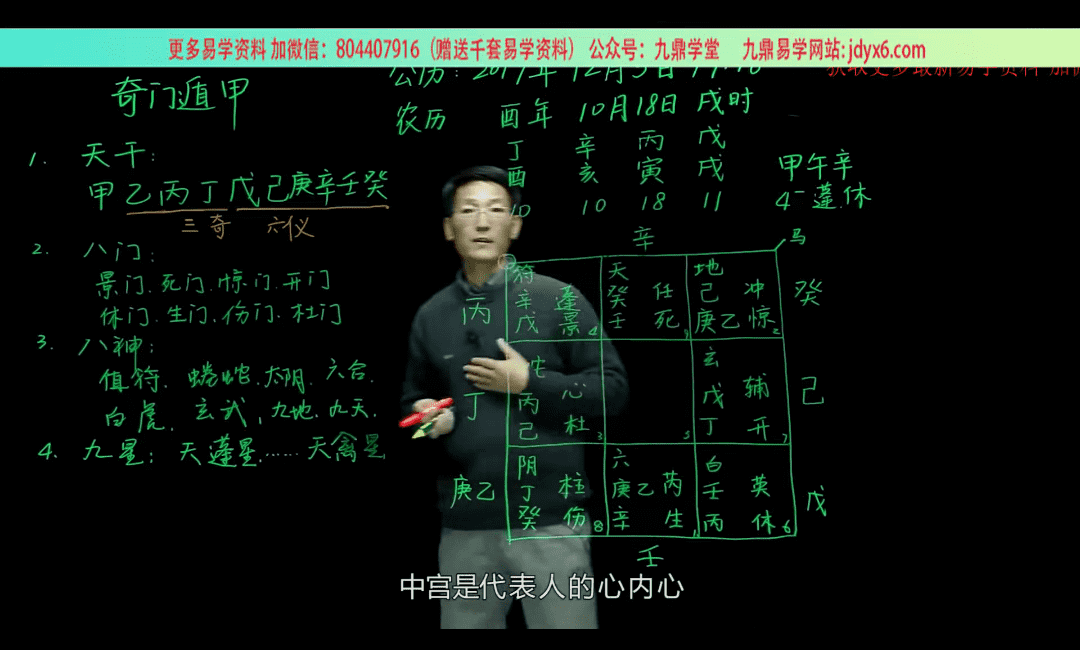 更多易学资料 加微信：804407916（赠送千套易学资料） 公众号：九鼎学堂 九鼎易学网站:jdyx6.com
获取更多最新易学资料 加
公历：2017年 12月5日
奇门遁甲
农历 酉年 10月18日 戌时
丁 辛 丙 戊
酉 亥 寅 戌
10 10 18 11
甲午辛
4 蓬.休
1. 天干：
甲乙丙丁戊己庚辛壬癸
三奇 六仪
2. 八门：
景门.死门.惊门.开门
休门.生门.伤门.杜门
3. 八神：
值符.螣蛇.太阴.六合.
白虎.玄武,九地.九天.
4. 九星：天蓬星……天禽星
辛 马
丙 符 天 地 癸
辛 蓬 癸 任 己 冲
戊 景 4 壬 死 9 庚乙 惊 2
丁 蛇 玄 己
丙 心 戊 辅
己 杜 3 5 丁 开 7
庚乙 阴 六 白 戊
丁 柱 庚乙 芮 壬 英
癸 伤 8 辛 生 1 丙 休 6
壬
中宫是代表人的心内心